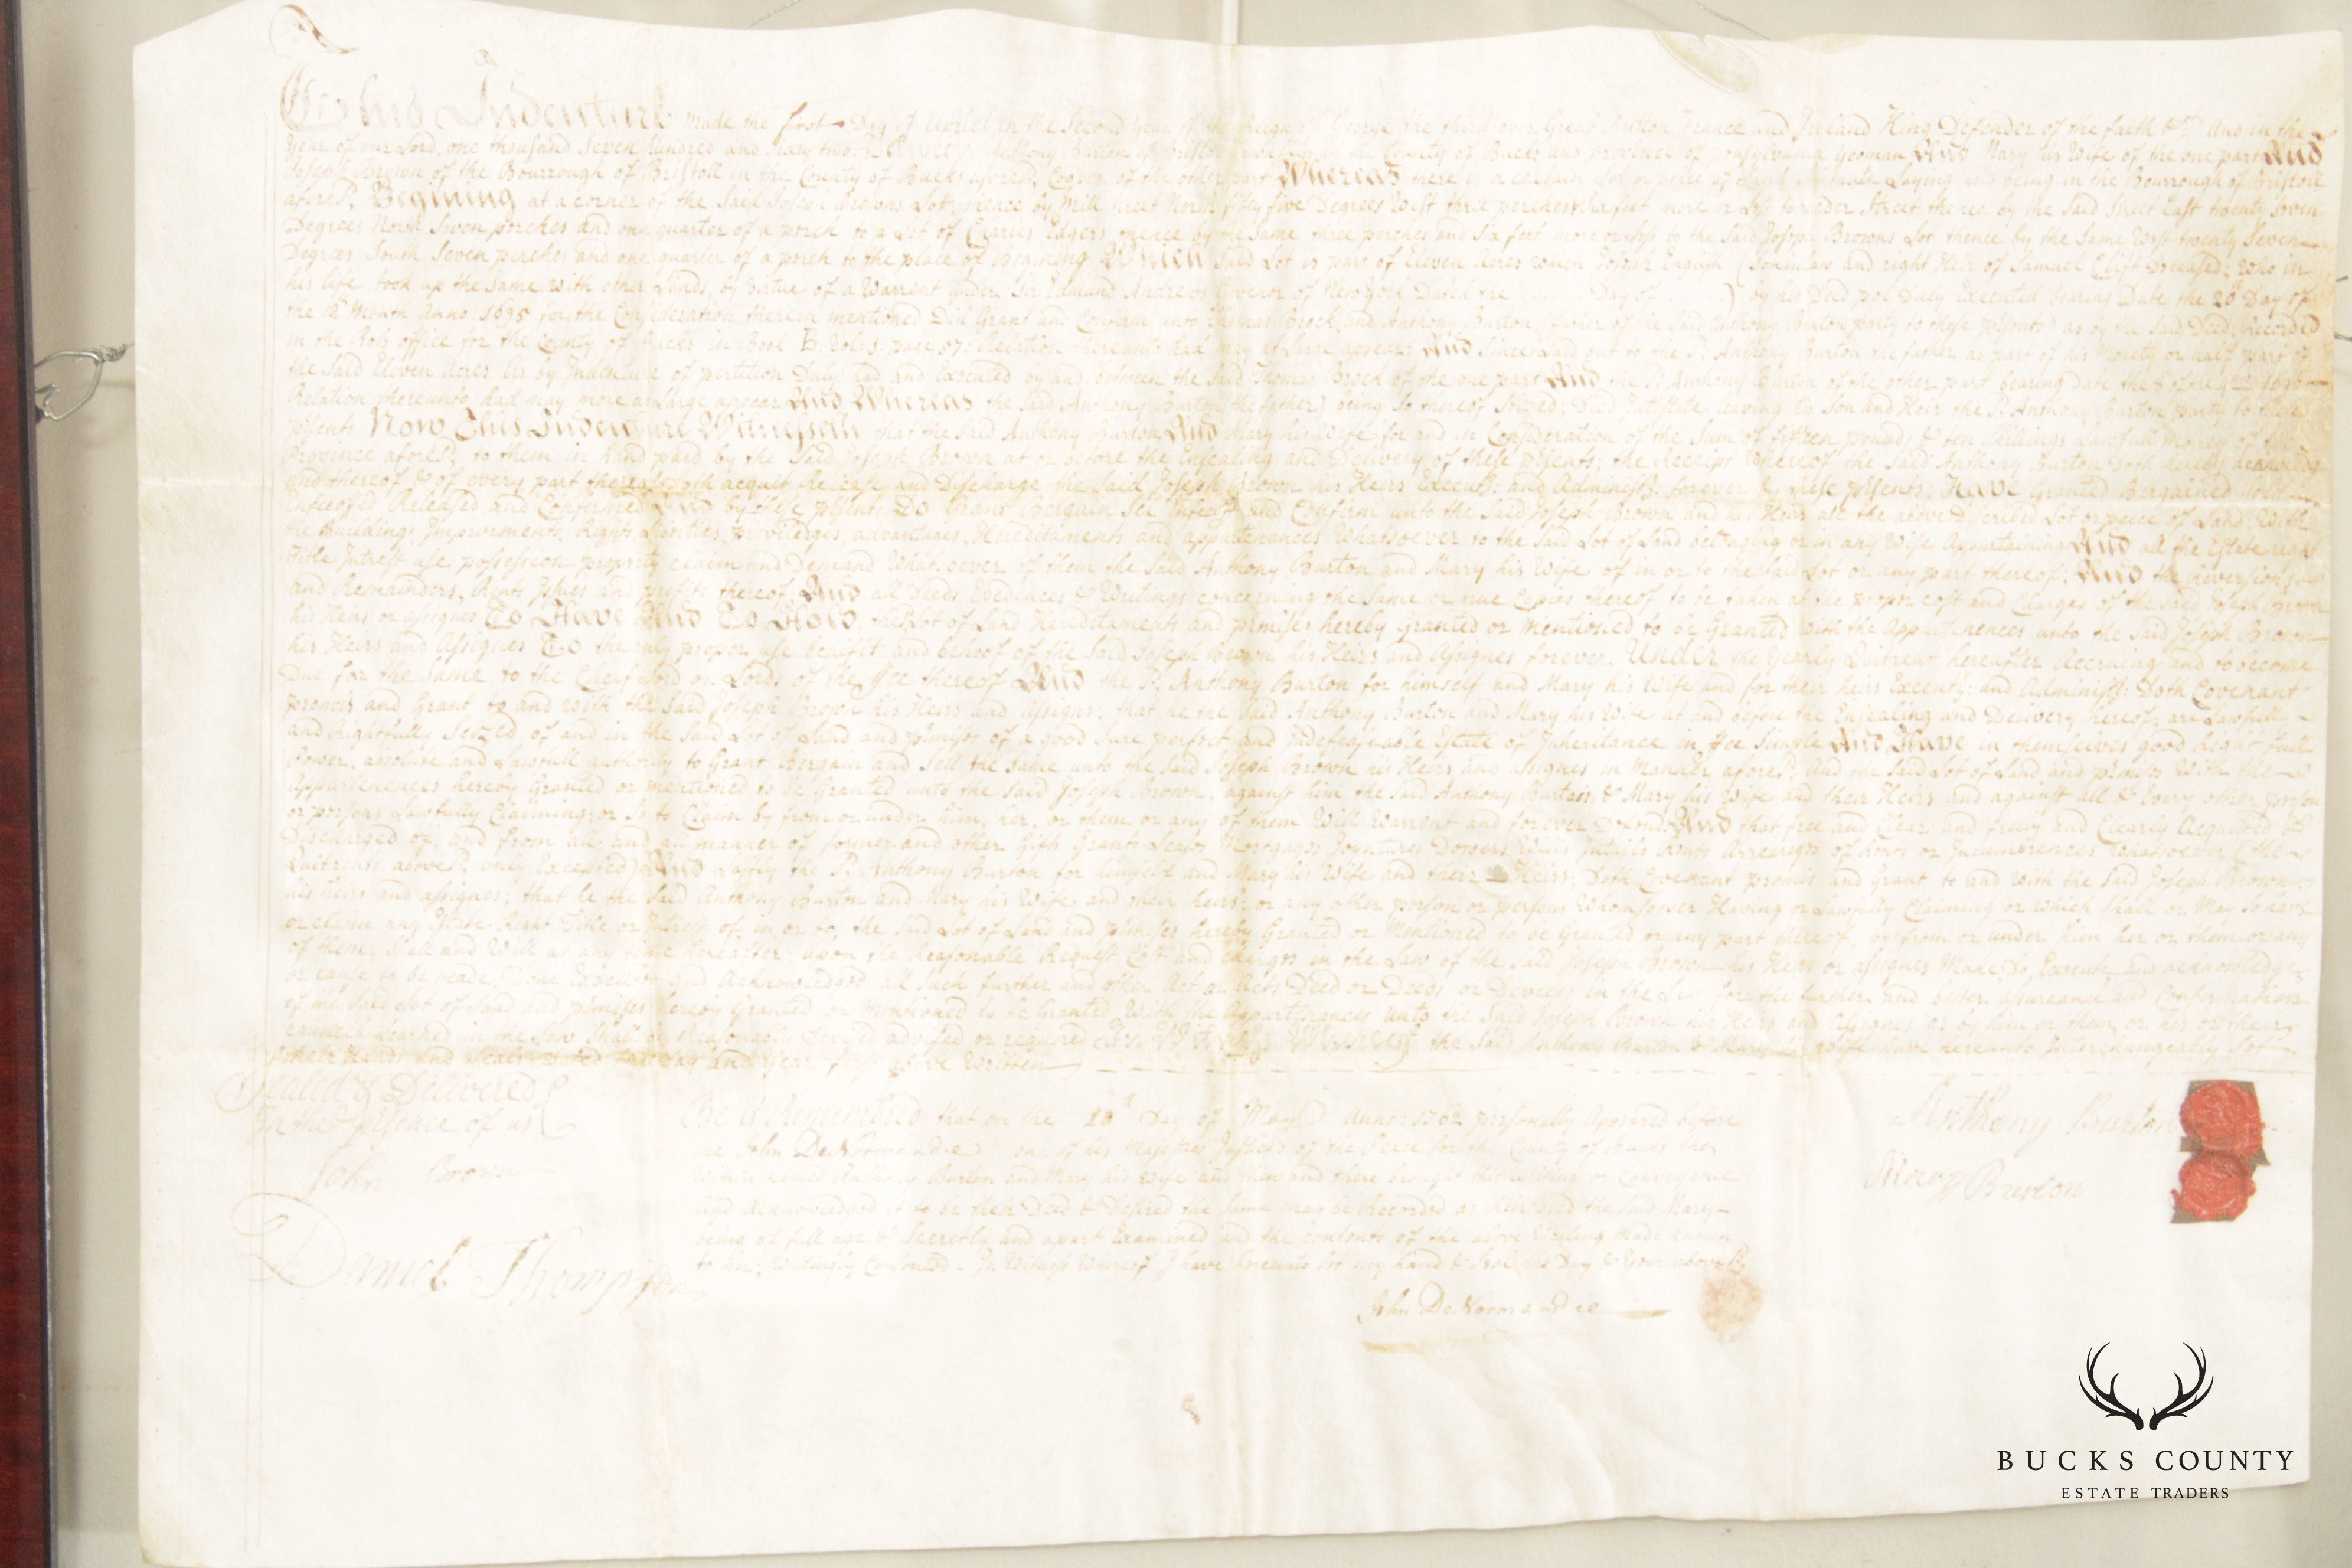 This Indenture Made the first Day of Aprill in the Second Year of the Reign of George the third over Great Britton France and Ireland King Defender of the faith &c And in the
Year of our Lord, one thousand Seven hundred and Sixty two Anthony Burton of Bristol in the County of Bucks and province of Yeoman And Mary his Wife of the one part And
Joseph Brown of the Bourrough of Bristoll in the County of Bucks of the other part Whereas there is a certain Lot or peice of Land Situate Laying and being in the Bourrough of Bristoll
Begining at a corner of the Said Joseph Browns Lot thence by Mill Street North fifty five Degrees West three perches feet more or Less to Ceder Street thence by the Said Street East twenty Seven
Degrees North Seven perches and one quarter of a perch to a Lot of Charles thence by the Same three perches and Six feet more or less to the Said Joseph Browns Lot thence by the Same West twenty Seven
Degrees South Seven perches and one quarter of a perch to the place of Begining Which Said Lot is part of Eleven Acres which Joseph English (Son in law and right Heir of Samuel Clift Deceased; Who in
his life took up the Same with other Lands, by Virtue of a Warrent under Sir Edmund Andrews Govenor of New York Dated the Day of ) by his Deed pol Duly Executed bearing Date the 20 Day of
the 12 Month Anno 1695 for the Consideration therein mentioned Did Grant and Confirm unto Thomas Brock and Anthony Burton (father of the Said Anthony Burton party to these psents) as by the Said Deed Recorded
in the Rols office for the County of Bucks in Book B page 57: Relation thereunto had may at Large appear: And Since Laid out to the Sd Anthony Burton the father as part of his Moiety or half part of
the Said Eleven Acres As by Indenture of partition Duly had and Executed by and between the Said Thomas Brock of the one part And the Sd Anthony Burton of the other part bearing date the 1696
Relation thereunto had may more at Large appear And Whereas the Said Anthony Burton (the father) being So thereof Seized; Died Intestate leaving to Son and Heir the Sd Anthony Burton party to these
psents Now This Indenture Witnesseth that the Said Anthony Burton And Mary his Wife for and in Consideration of the Sum of fifteen pounds & ten Shillings Lawfull Money of the
Province aforesd to them in hand paid by the Said Joseph Brown at or before the Ensealing and Delivery of these psents; the Receipt Whereof the Said Anthony Burton Doth hereby acknowledg
and thereof & of every part thereof Doth acquit Release and Discharge the Said Joseph Brown his Heirs Execut: and Administ: forever by these psents: Have Granted Bergained Sold
Enfeoffed Released and Confermed And by these psents Do Grant Bergain Sel Enfeoff and Confirm unto the Said Joseph Brown and his Heirs all the above Discribed Lot or peice of Land: With
the Buildings Improvements, Rights Liberties, priviledges, advantages, Hereditaments and appurtenances Whatsoever to the Said Lot of Land belonging or in any Wise Appurtaining And all the Estate right
Title Intrest use possession property claim and Demand Whatsoever of them the Said Anthony Burton and Mary his Wife of in or to the Said Lot or any part thereof; And the Reversions
and Remainders, Rents Issues and profits thereof And all Deeds Evedences & Writings concerning the Same or true Copies thereof to be taken at the proper cost and Charges of the Said Joseph Brown
his Heirs or assignes To Have And To Hold the Sd Lot of Land Hereditaments and pmises hereby Granted or Mentioned to be Granted with the Appurtenences unto the Said Joseph Brown
his Heirs and Assignes To the only proper use benefit and behoof of the Said Joseph Brown his Heirs and Assignes forever. Under the Yearly Quitrent hereafter Accruing and to become
Due for the Same to the Cheif Lord or Lords of the ffee thereof And the Sd Anthony Burton for himself and Mary his Wife and for their heirs Execut: and Administ: Doth Covenant
promis and Grant to and with the Said Joseph Brown his Heirs and Assigns: that he the Said Anthony Burton and Mary his Wife at and before the Ensealing and Delivery hereof, are Lawfully
and Rightfully Seized of and in the Said Lot of Land and pmises of a good Sure perfect and Indefeasable Estate of Inheritance in ffee Simple And Have in themselves good Right full
Power, absolute and Lawfull authority to Grant Bergain and Sell the Same unto the Said Joseph Brown his Heirs and assignes in Manner aforesd And the Said Lot of Land and pmises With the
Appurtenences hereby Granted or mentioned to be Granted unto the Said Joseph Brown, against him the Said Anthony Burton & Mary his Wife and their Heirs and against all & Every other person
or persons Lawfully Claiming or to Claim by from or under him, her, or them or any of them Will Warrent and forever Defend And that free and Clear and freely and Clearly Acquited &
Discharged of, and from all, and all manner of former and other Gifts Grants Leases Mortgages Jountures Dowers Wills Intails Rents Arrearages of Rents or Incumbrences Whatsoever (the
Quitrents abovesd only Excepted) And Lastly the Sd Anthony Burton for himself and Mary his Wife and their Heirs; Doth Covenant promis and Grant to and with the Said Joseph Brown
his heirs and assignes; that he the Said Anthony Burton and Mary his Wife and their heirs: or any other person or persons Whomsoever Having or Lawfully Claiming or which Shall or May So have
or claim any Estate Right Title or Intrest of, in or to, the Said Lot of Land and pmises hereby Granted or Mentioned to be Granted or any part thereof; by from or under him her or them or any
of them; Shall and Will at any time hereafter; upon the Reasonable Request Cost and charges in the Law of the Said Joseph Brown his Heirs or assignes Make Do, Execute and acknowledge
or cause to be made, Done Executed and Acknowledged all Such further and other Act or Acts Deed or Deeds or Devices in the Law for the further and better assureance and Conformation
of the Said Lot of Land and pmises hereby Granted or Mentioned to be Granted, With the Appurtenances unto the Said Joseph Brown his Heirs and Assignes as by him or them, or his or their
Council Learned in the Law Shall be Reasonably Devised advised or required In Witness Whereof the Said Anthony Burton & Mary his Wife have hereunto Interchangeably Set
their Hands and Seals Dated the Day and Year first above Written
Sealed & Delivered
In the psence of us
John Brown
Daniel Thompson
Be it Remembred that on the 20d Day of May Anno: 1762 personally Appeared before
me John DeNormandie one of his Majesties Justices of the Peace for the County of Bucks the
Within named Anthony Burton and Mary his Wife and then and there brought this writing or Conveyence
and Acknowledged it to be their Deed & Desired the Same may be Recorded as their Deed the Said Mary
being of full age & Secretly and apart Examined and the contents of the above Writing Made known
to her; Willingly Consented. In Witness Whereof I have hereunto Set my hand & Seal the Day & Year above Sd
John DeNormandie
Anthony Burton
Mary Burton
BUCKS COUNTY
ESTATE TRADERS